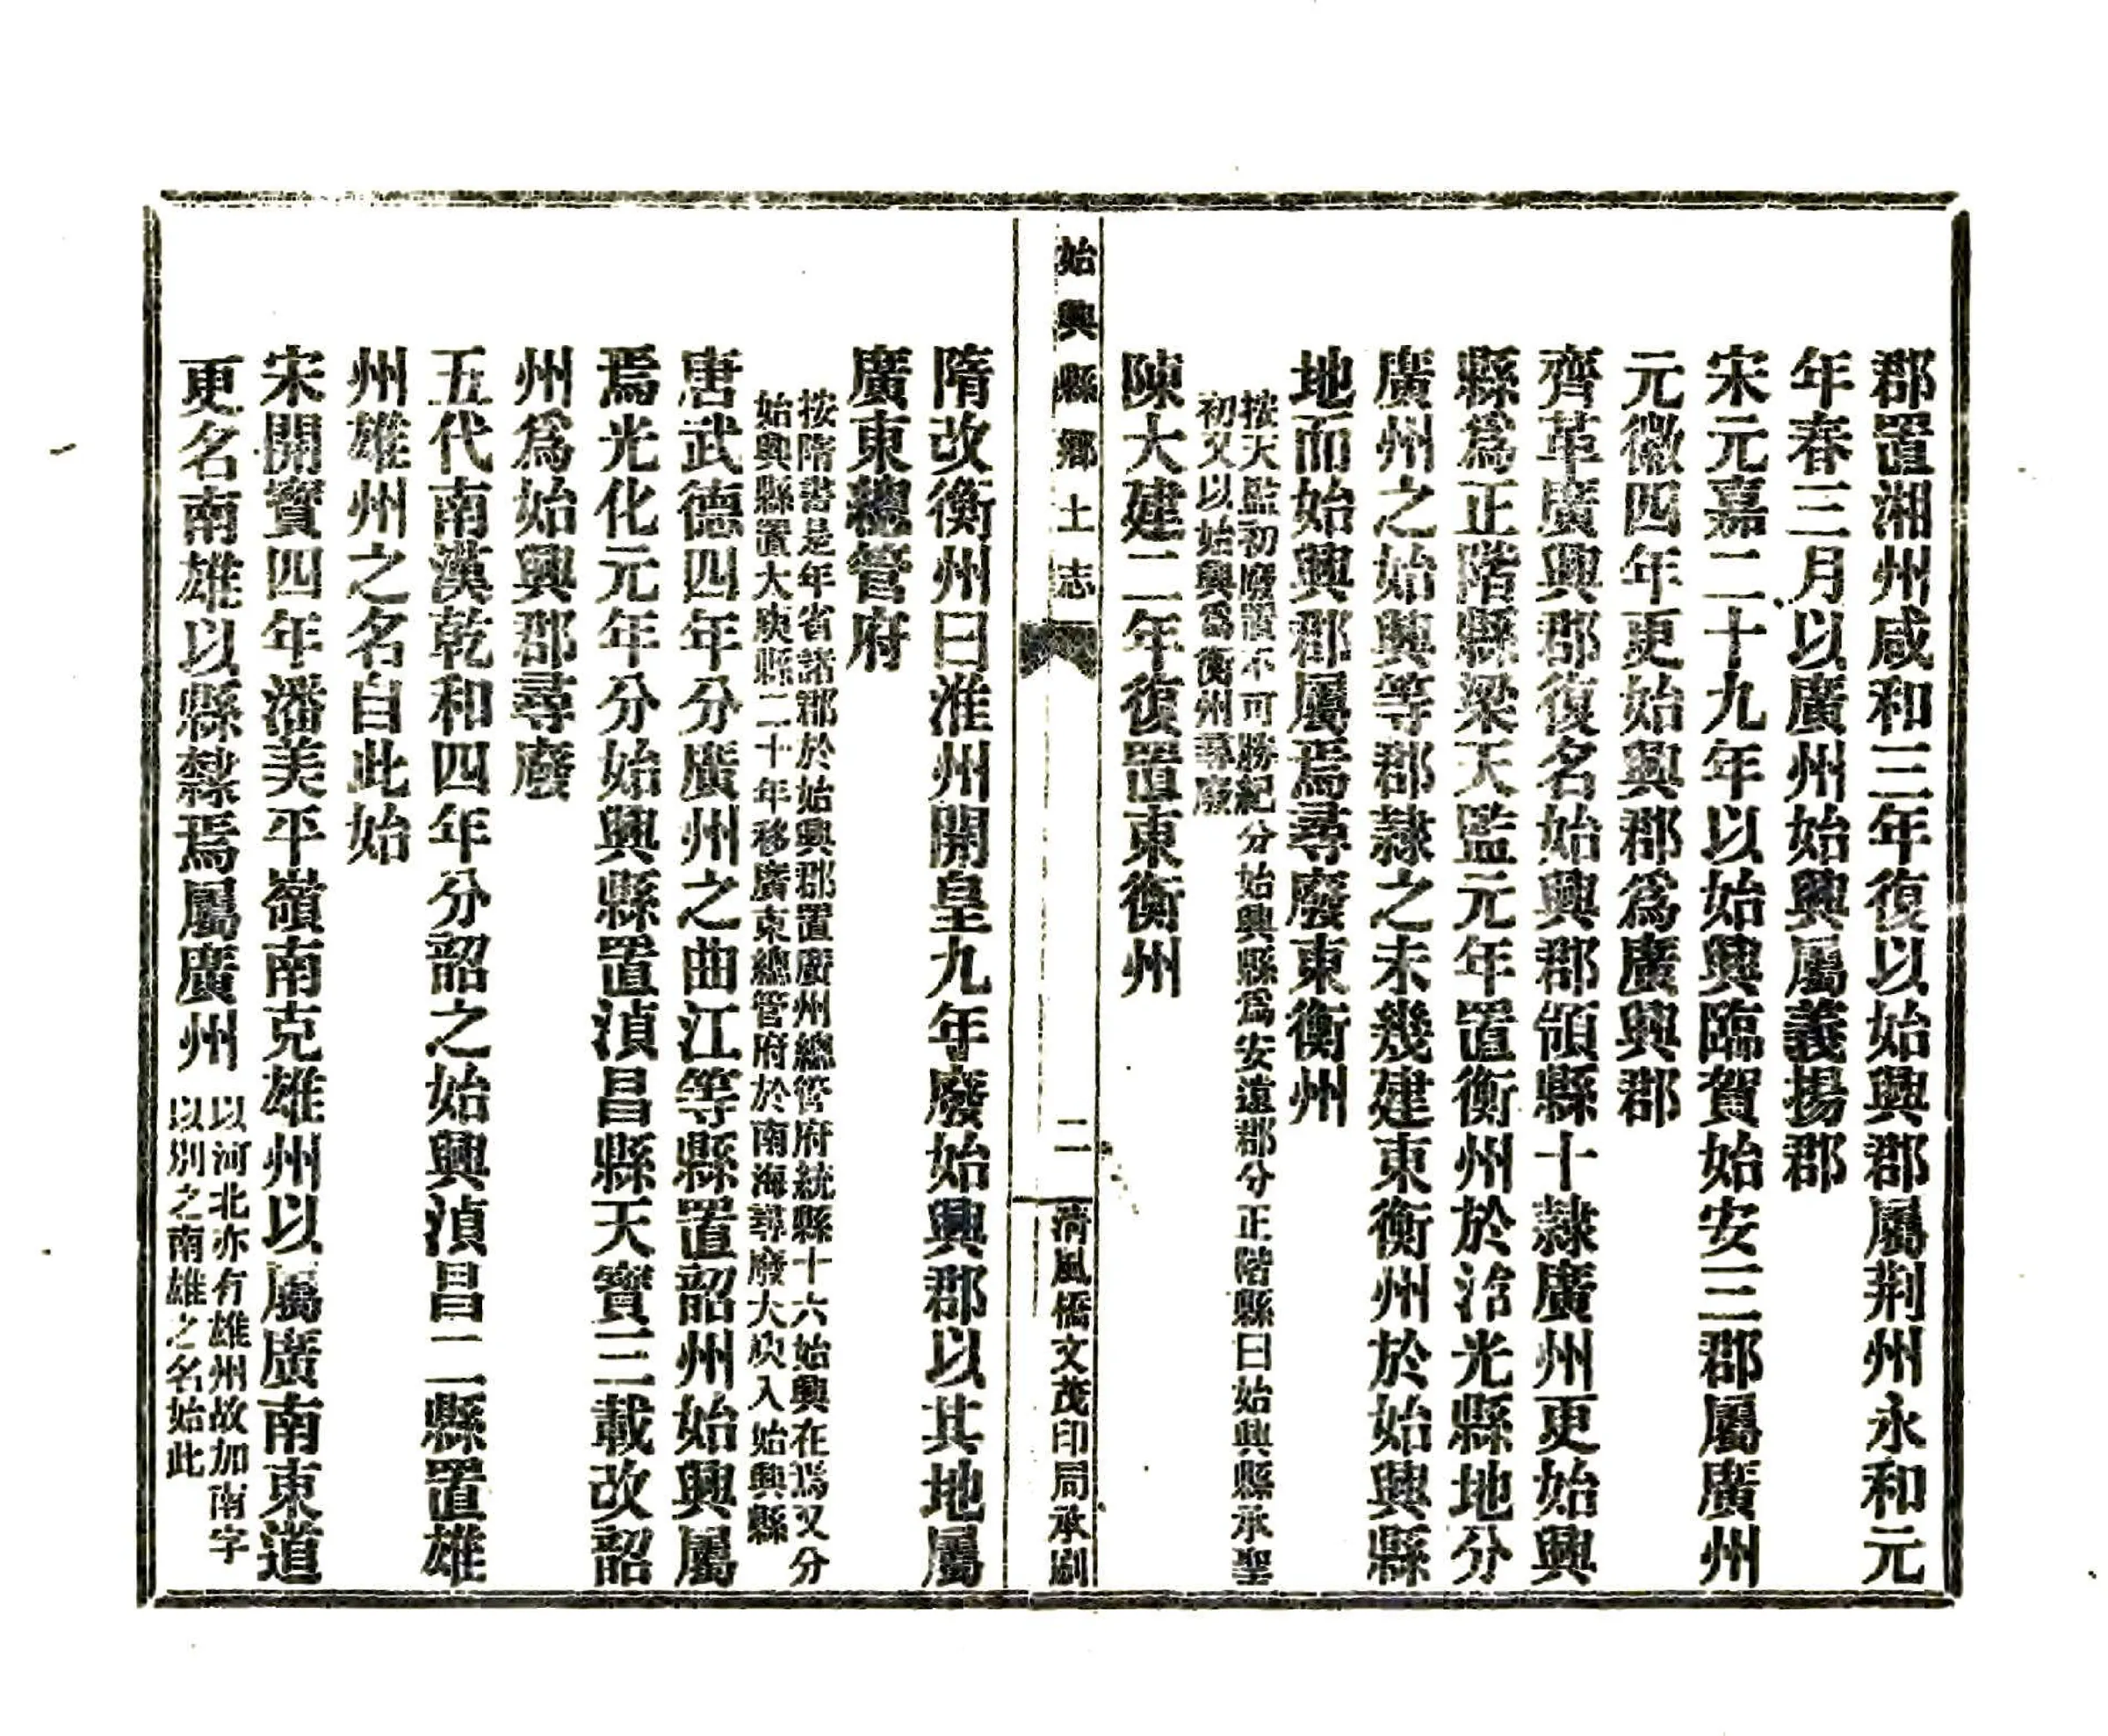 郡置湘州咸和三年復以始興郡屬荆州永和元
年春三月以廣州始興屬義揚郡
宋元嘉二十九年以始興臨賀始安三郡屬廣州
元徽四年更始興郡爲廣興郡
齊革廣興郡復名始興郡領縣十隸廣州更始興
縣爲正階縣梁天監元年置衡州於洽光縣地分
廣州之始興等郡隸之未幾建東衡州於始興縣
地而始興郡屬焉尋廢東衡州
按天監初廢置不可勝紀分始興縣爲安遠郡分正階縣曰始興縣承聖
初又以始興爲衡州尋廢
陳大建二年復置東衡州
始興縣鄉土志
二
清風橋文茂印局承刷
隋改衡州曰淮州開皇九年廢始興郡以其地屬
廣東總管府
按隋書是年省諸郡於始興郡置廣州總管府統縣十六始興在焉又分
始興縣置大庾縣二十年移廣東總管府於南海尋廢大庾入始興縣
唐武德四年分廣州之曲江等縣置韶州始興屬
焉光化元年分始興縣置湞昌縣天寶三載改韶
州爲始興郡尋廢
五代南漢乾和四年分韶之始興湞昌二縣置雄
州雄州之名自此始
宋開寶四年潘美平嶺南克雄州以屬廣南東道
更名南雄以縣隸焉屬廣州
以河北亦有雄州故加南字
以別之南雄之名始此